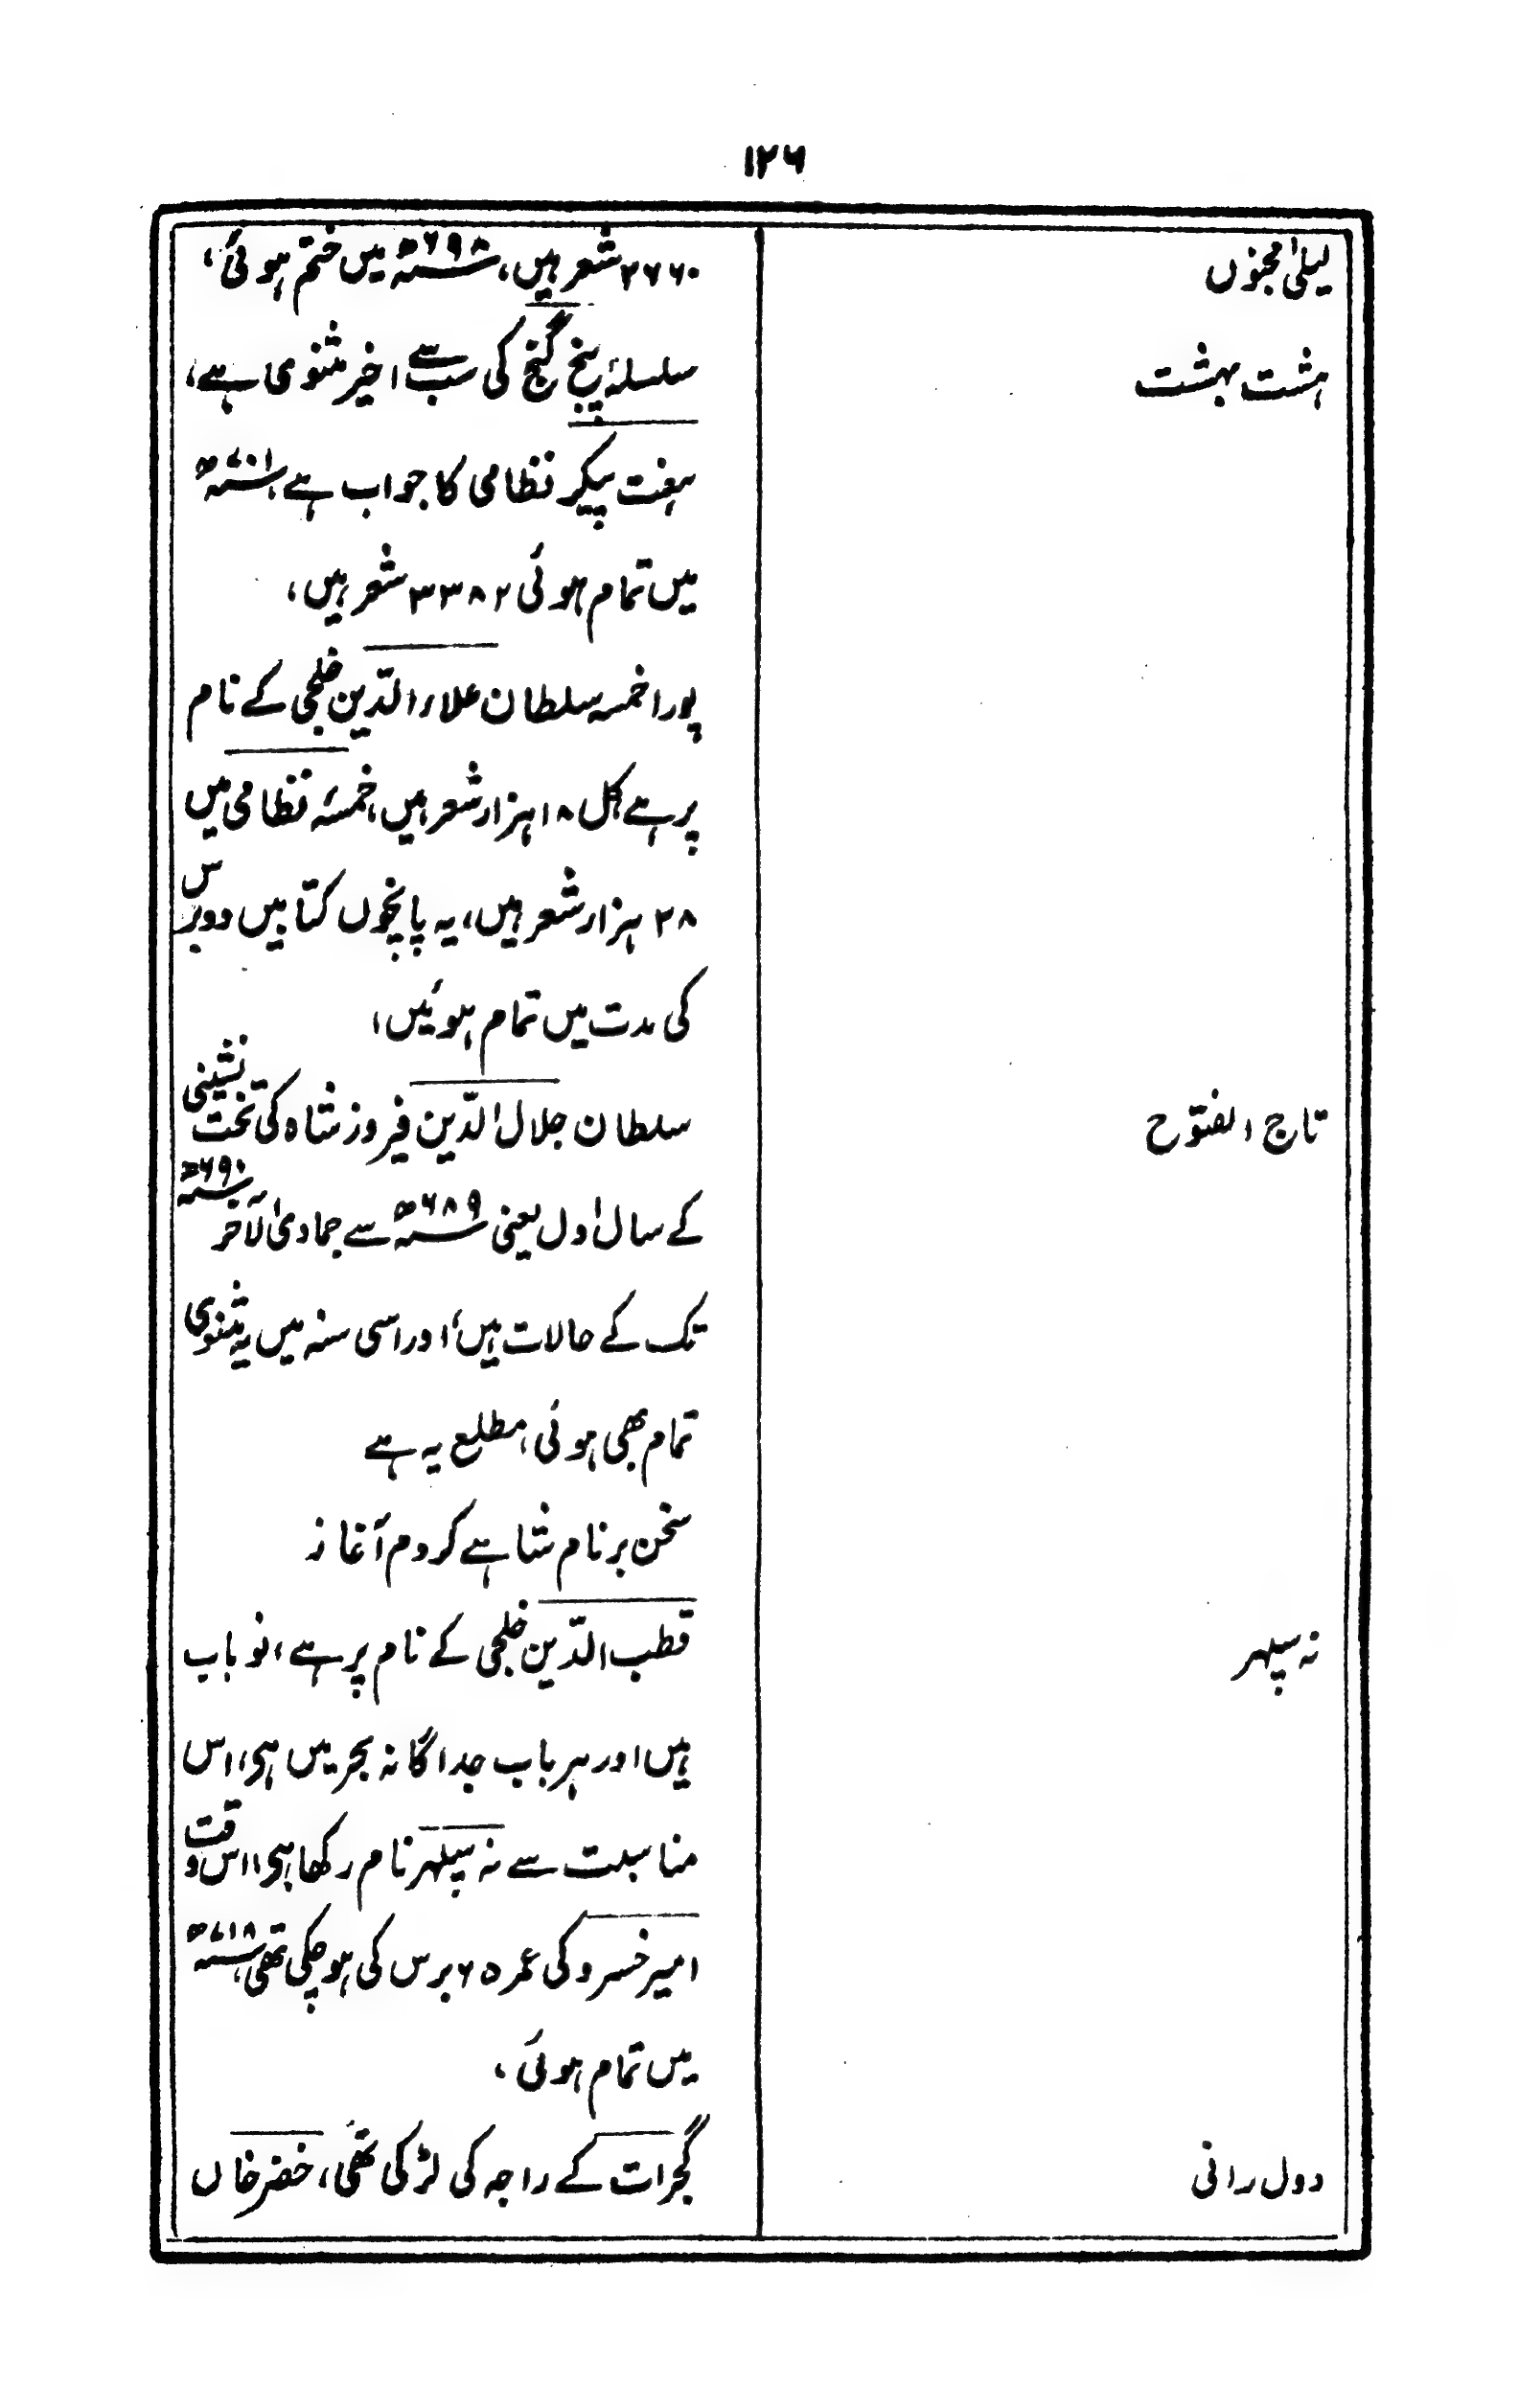 ۱۲۶
لیلیٰ مجنوں
۲۶۶۰ شعر ہیں، ۶۹۸ھ میں ختم ہوئی،
ہشت بہشت
سلسلۂ پنج گنج کی سب سے اخیر مثنوی ہے،
ہفت پیکر نظامی کا جواب ہے، ۷۰۱ھ
میں تمام ہوئی ۳۳۸۲ شعر ہیں،
پورا خمسہ سلطان علاء الدّین خلجی کے نام
پر ہے، کل ۱۸ ہزار شعر ہیں، خمسۂ نظامی میں
۲۸ ہزار شعر ہیں، یہ پانچوں کتابیں دو برس
کی مدت میں تمام ہوئیں،
تاج الفتوح
سلطان جلال الدّین فیروز شاہ کی تخت نشینی
کے سال اول یعنی ۶۸۹ھ سے جمادی الآخر ۶۹۰ھ
تک کے حالات ہیں، اور اسی سنہ میں یہ مثنوی
تمام بھی ہوئی، مطلع یہ ہے
سخن بر نام شاہے کردم آغاز
نہ سپہر
قطب الدّین خلجی کے نام پر ہے، نو باب
ہیں اور ہر باب جداگانہ بحر میں ہی، اس
مناسبت سے نہ سپہر نام رکھا ہی، اس وقت
امیر خسرو کی عمر ۶۵ برس کی ہو چکی تھی، ۷۱۸ھ
میں تمام ہوئی،
دول رانی
گجرات کے راجہ کی لڑکی تھی، خضر خاں